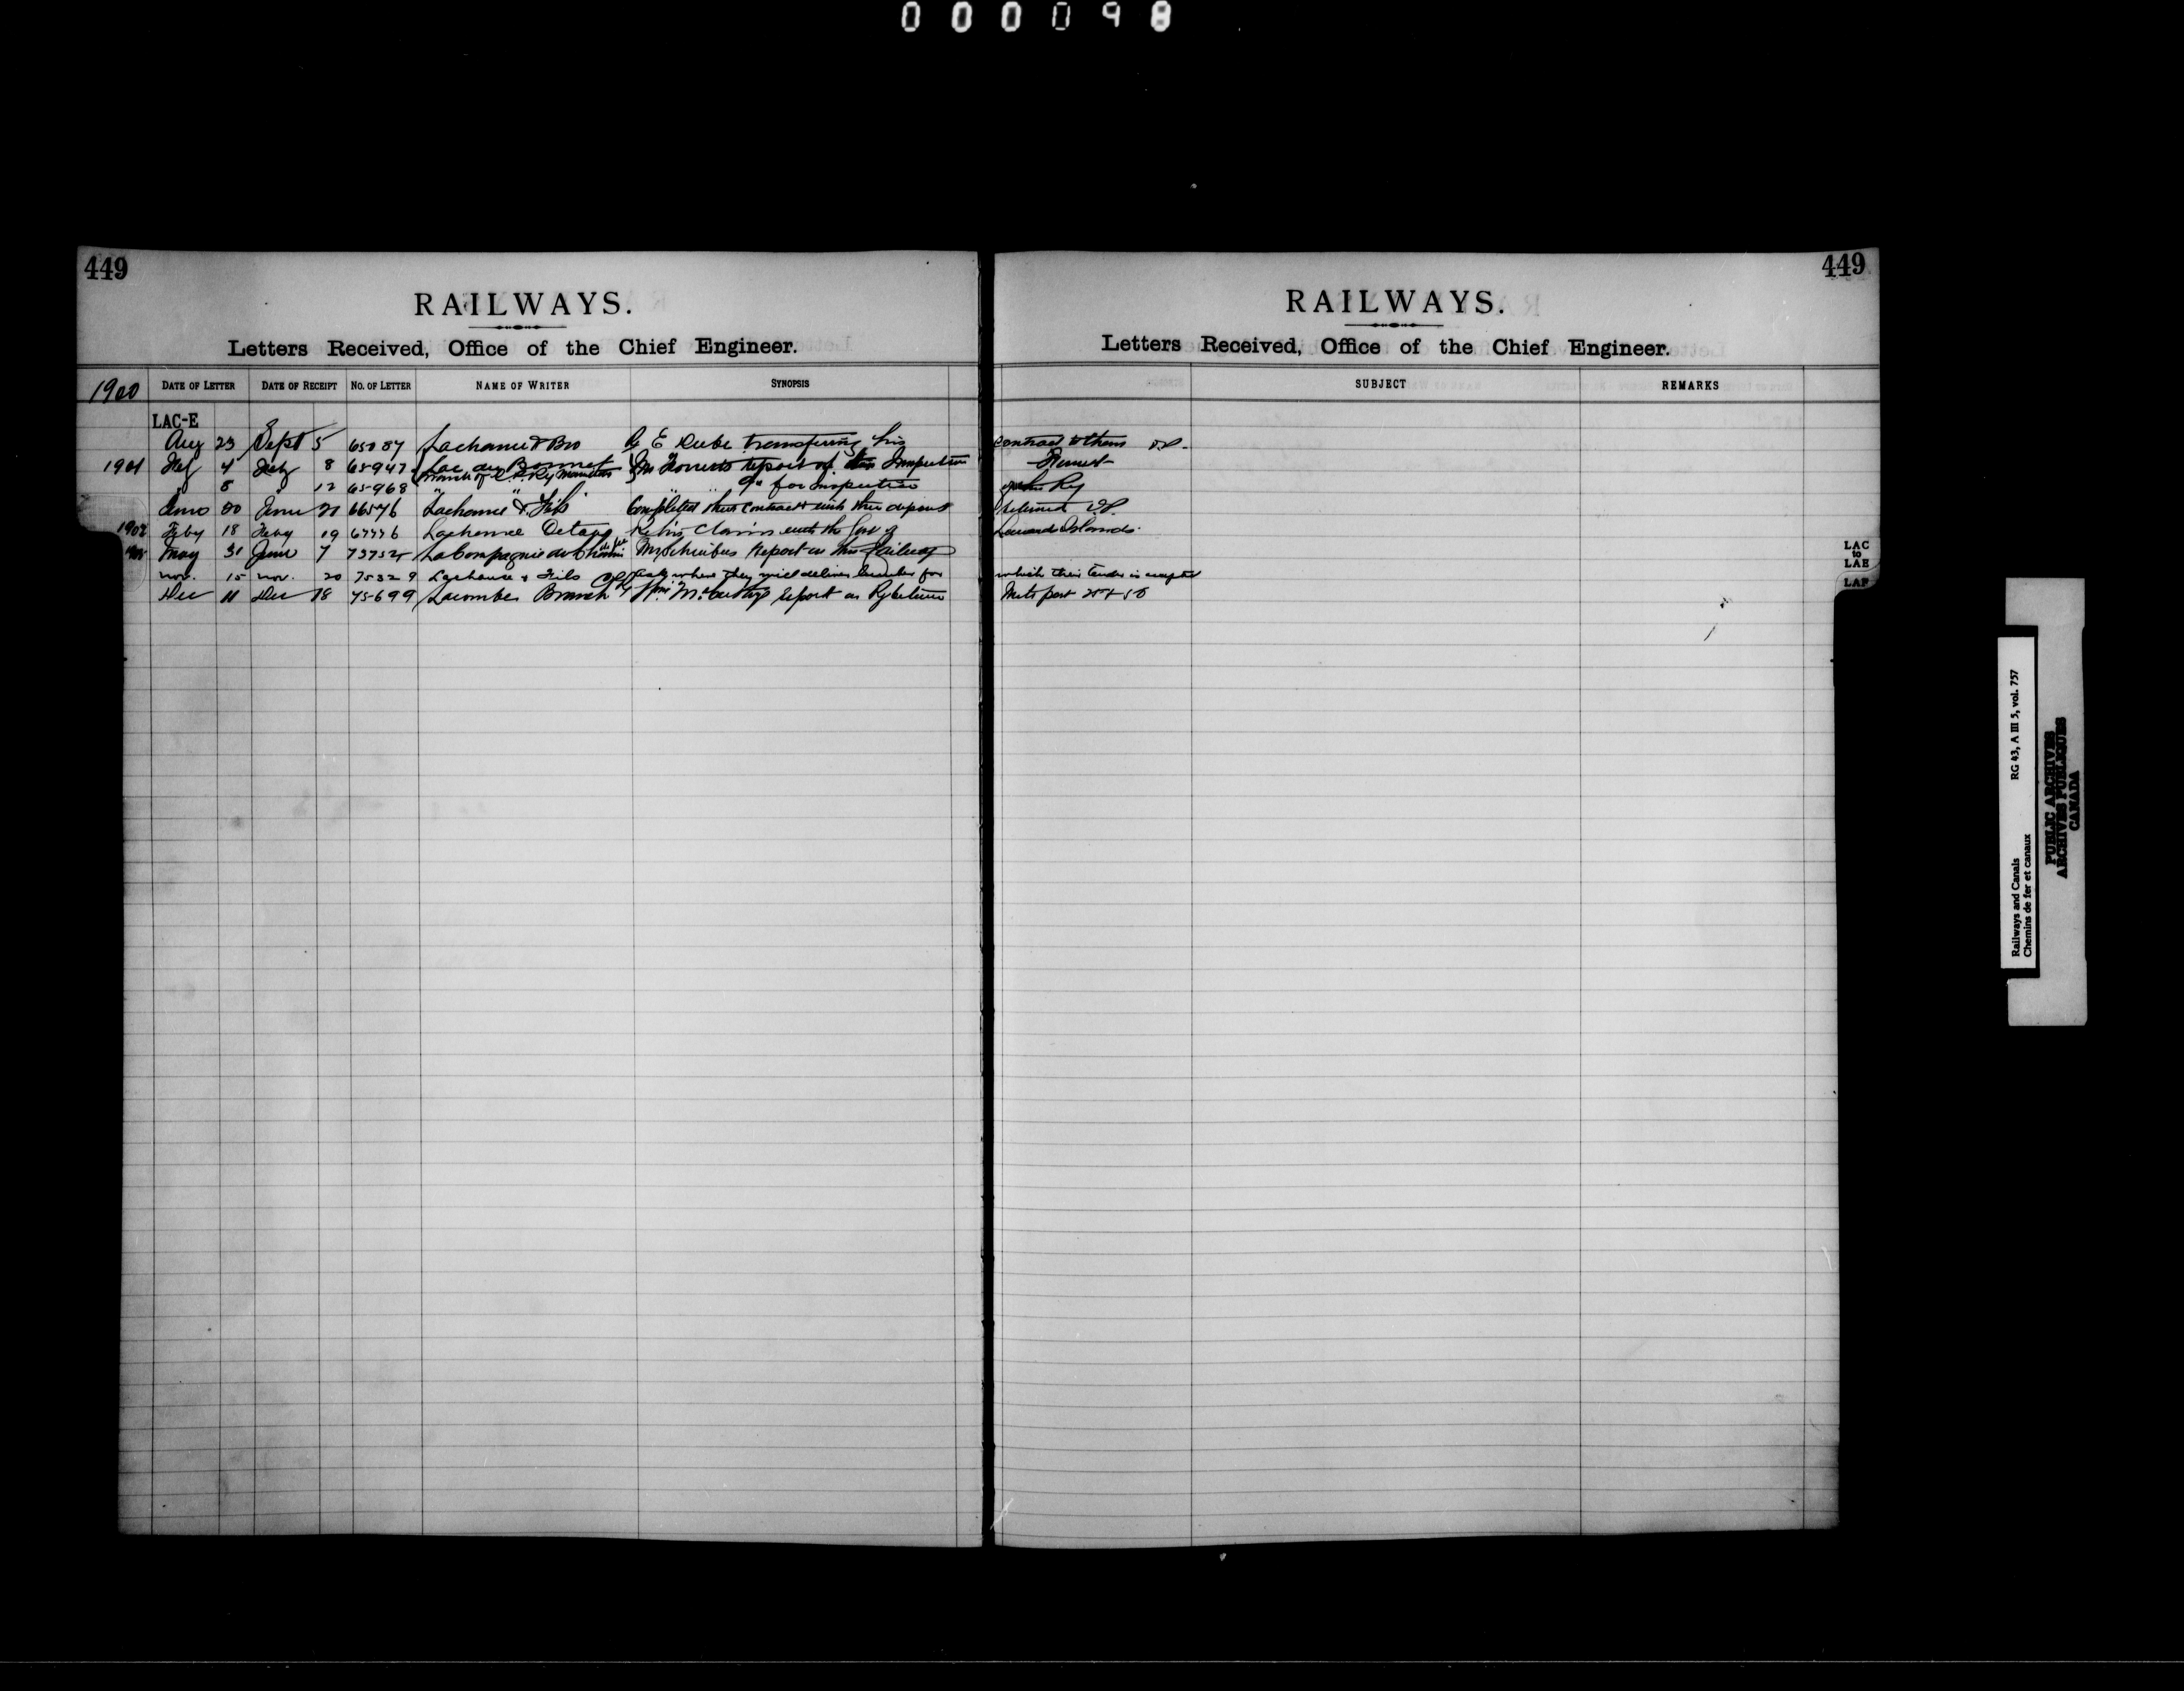 000098
449
RAILWAYS.
Letters Received, Office of the Chief Engineer.
1900 DATE OF LETTER DATE OF RECEIPT No. OF LETTER NAME OF WRITER SYNOPSIS
LAC-E
Aug 23 Sept 5 65087 Lachance & Bro E Dube transferring his
1901 Feb 4 Feb 8 65947 Lac du Bonnet report of Inspection
Branch of C.P. Ry Manitoba
" 8 " 12 65968 " " for Inspection
June 20 June 21 66546 Lachance & Fils Completed their contract wish their deposit
1902 Feby 18 Feby 19 Lachance Octave Re his Claim with the Govt of
May 31 June 7 La Compagnie du Chemin de fer Mr Schreibers Report on this Railway
Nov. 15 Nov. 20 75329 Lachance & Fils Ask where they will deliver lumber for
Dec 11 Dec 18 75699 Lacombe Branch report on Ry between
449
RAILWAYS.
Letters Received, Office of the Chief Engineer.
SUBJECT REMARKS
contract to them
of this Ry
returned
Leeward Islands.
which their tender is accepted
Mile post 25 & 50
LAC
to
LAE
LAF
Railways and Canals RG 43, A III 5, vol. 757
Chemins de fer et canaux
PUBLIC ARCHIVES
ARCHIVES PUBLIQUES
CANADA